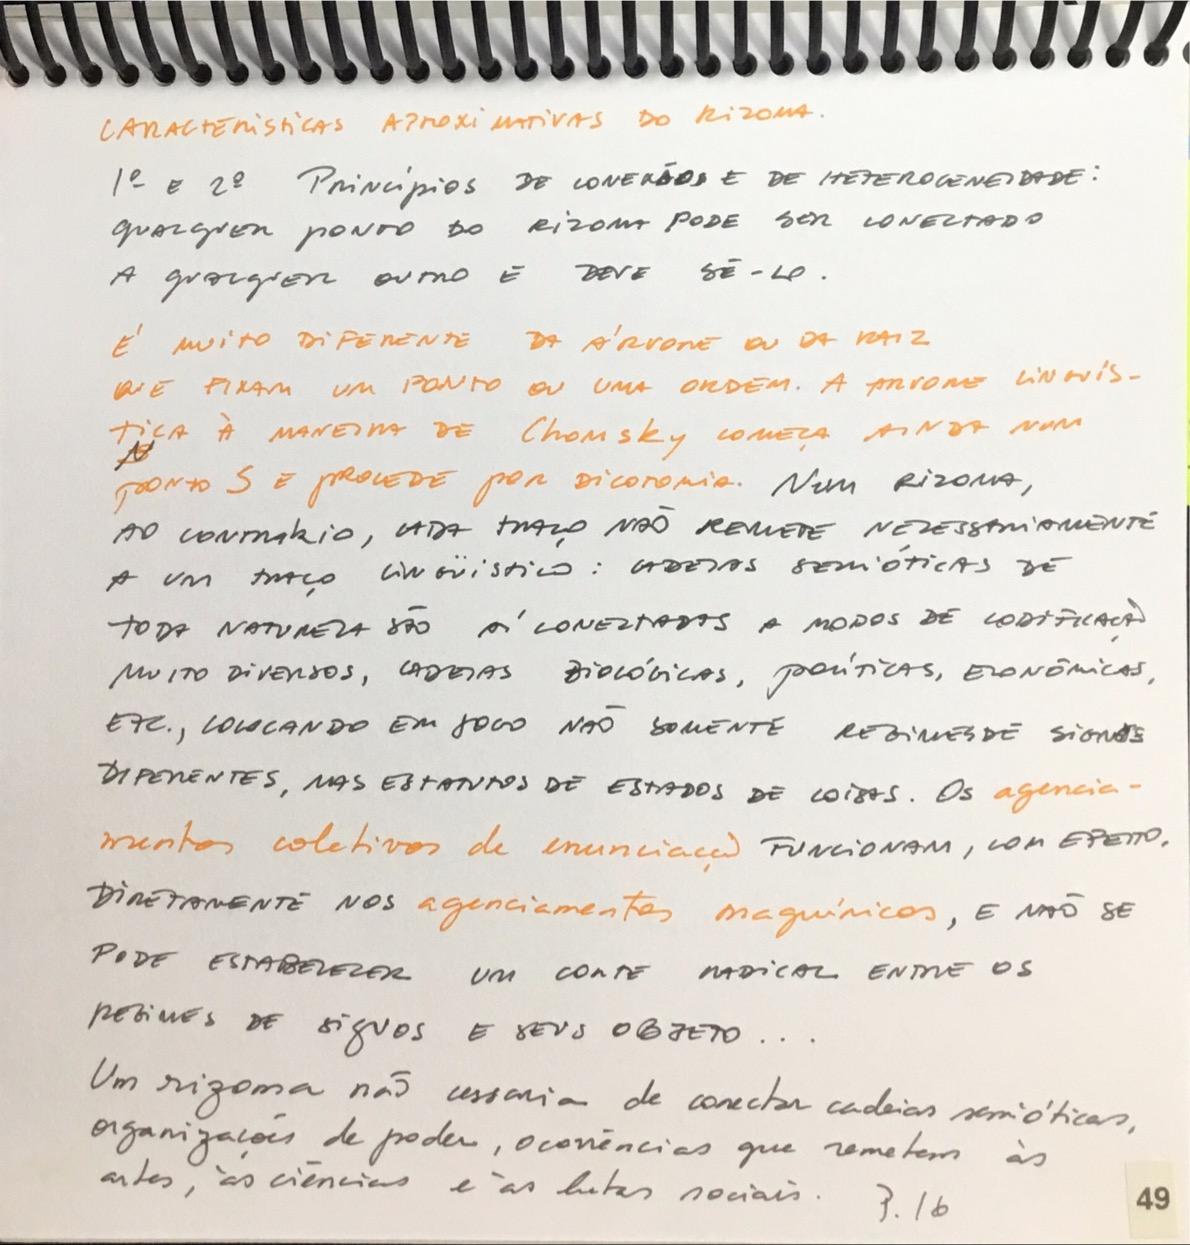 CARACTERÍSTICAS APROXIMATIVAS DO RIZOMA.
1º E 2º PRINCÍPIOS DE CONEXÃO E DE HETEROGENEIDADE:
QUALQUER PONTO DO RIZOMA PODE SER CONECTADO
A QUALQUER OUTRO E DEVE SÊ-LO.
É MUITO DIFERENTE DA ÁRVORE OU DA RAIZ
QUE FIXAM UM PONTO OU UMA ORDEM. A ARVORE LINGUÍS-
TICA À MANEIRA DE Chomsky COMEÇA AINDA NUM
PONTO S E PROCEDE POR DICOTOMIA. NUM RIZOMA,
AO CONTRÁRIO, CADA TRAÇO NÃO REMETE NECESSARIAMENTE
A UM TRAÇO LINGÜÍSTICO: CADEIAS SEMIÓTICAS DE
TODA NATUREZA SÃO AÍ CONECTADAS A MODOS DE CODIFICAÇÃO
MUITO DIVERSOS, CADEIAS BIOLÓGICAS, POLÍTICAS, ECONÔMICAS,
ETC., COLOCANDO EM JOGO NÃO SOMENTE REGIMES DE SIGNOS
DIFERENTES, MAS ESTATUTOS DE ESTADOS DE COISAS. Os agencia-
mentos coletivos de enunciação FUNCIONAM, COM EFEITO,
DIRETAMENTE NOS agenciamentos maquínicos, E NÃO SE
PODE ESTABELECER UM CORTE RADICAL ENTRE OS
REGIMES DE SIGNOS E SEUS OBJETO...
Um rizoma não cessaria de conectar cadeias semióticas,
organizações de poder, ocorrências que remetem às
artes, às ciências e às lutas sociais. P. 16
49